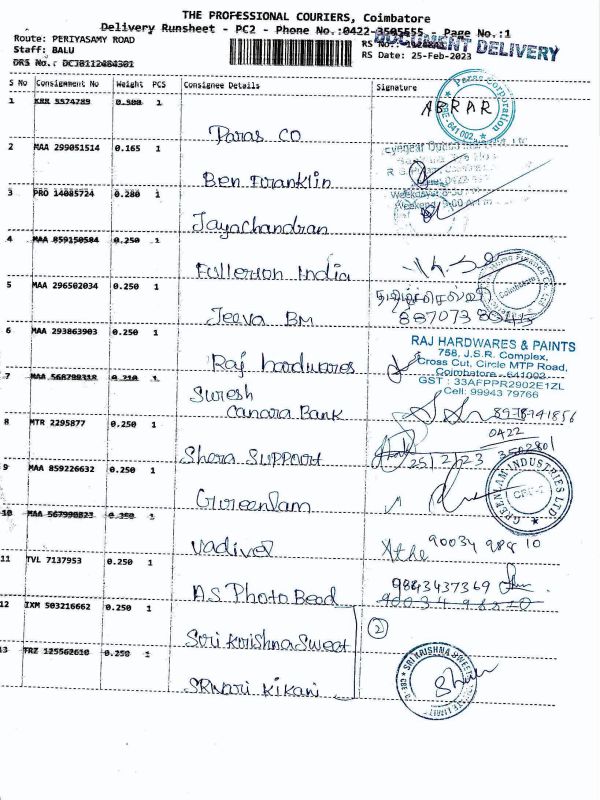 THE PROFESSIONAL COURIERS, Coimbatore
Delivery Runsheet - PC2 - Phone No.:0422-3505555 - Page No.:1
Route: PERIYASAMY ROAD
DOCUMENT DELIVERY
Staff: BALU
RS Date: 25-Feb-2023
DRS No.: DCJ0112484301
S No Consignment No Weight PCS Consignee Details Signature
1 KRR 5574789 0.300 1 Paras CO ABRAR
Paras Corporation
CBE-641 002.
2 MAA 299051514 0.165 1 Ben Franklin
3 PRO 14085724 0.280 1 Jayachandran
4 MAA 859150584 0.250 1 Fullerton India
Coimbatore
5 MAA 296502034 0.250 1 Jeeva BM
6 MAA 293863903 0.250 1 Raj hardwares
RAJ HARDWARES & PAINTS
758, J.S.R. Complex,
Cross Cut, Circle MTP Road,
Coimbatore - 641002
GST : 33AFPPR2902E1ZL
Cell: 99943 79766
7 MAA 568798318 0.210 1 Suresh
Canara Bank 8978741856
8 MTR 2295877 0.250 1 Shera Support
0422
25/2/23
9 MAA 859226632 0.250 1 Greenlam
GREENLAM INDUSTRIES LTD
10 MAA 567990823 0.350 1 Vadivel
11 TVL 7137953 0.250 1 A.S Photo Bead 9843437369
12 IXM 503216662 0.250 1 Sri Krishna Sweet 2
13 TRZ 125562610 0.250 1 SRwari Kikani
SRI KRISHNA SWEETS